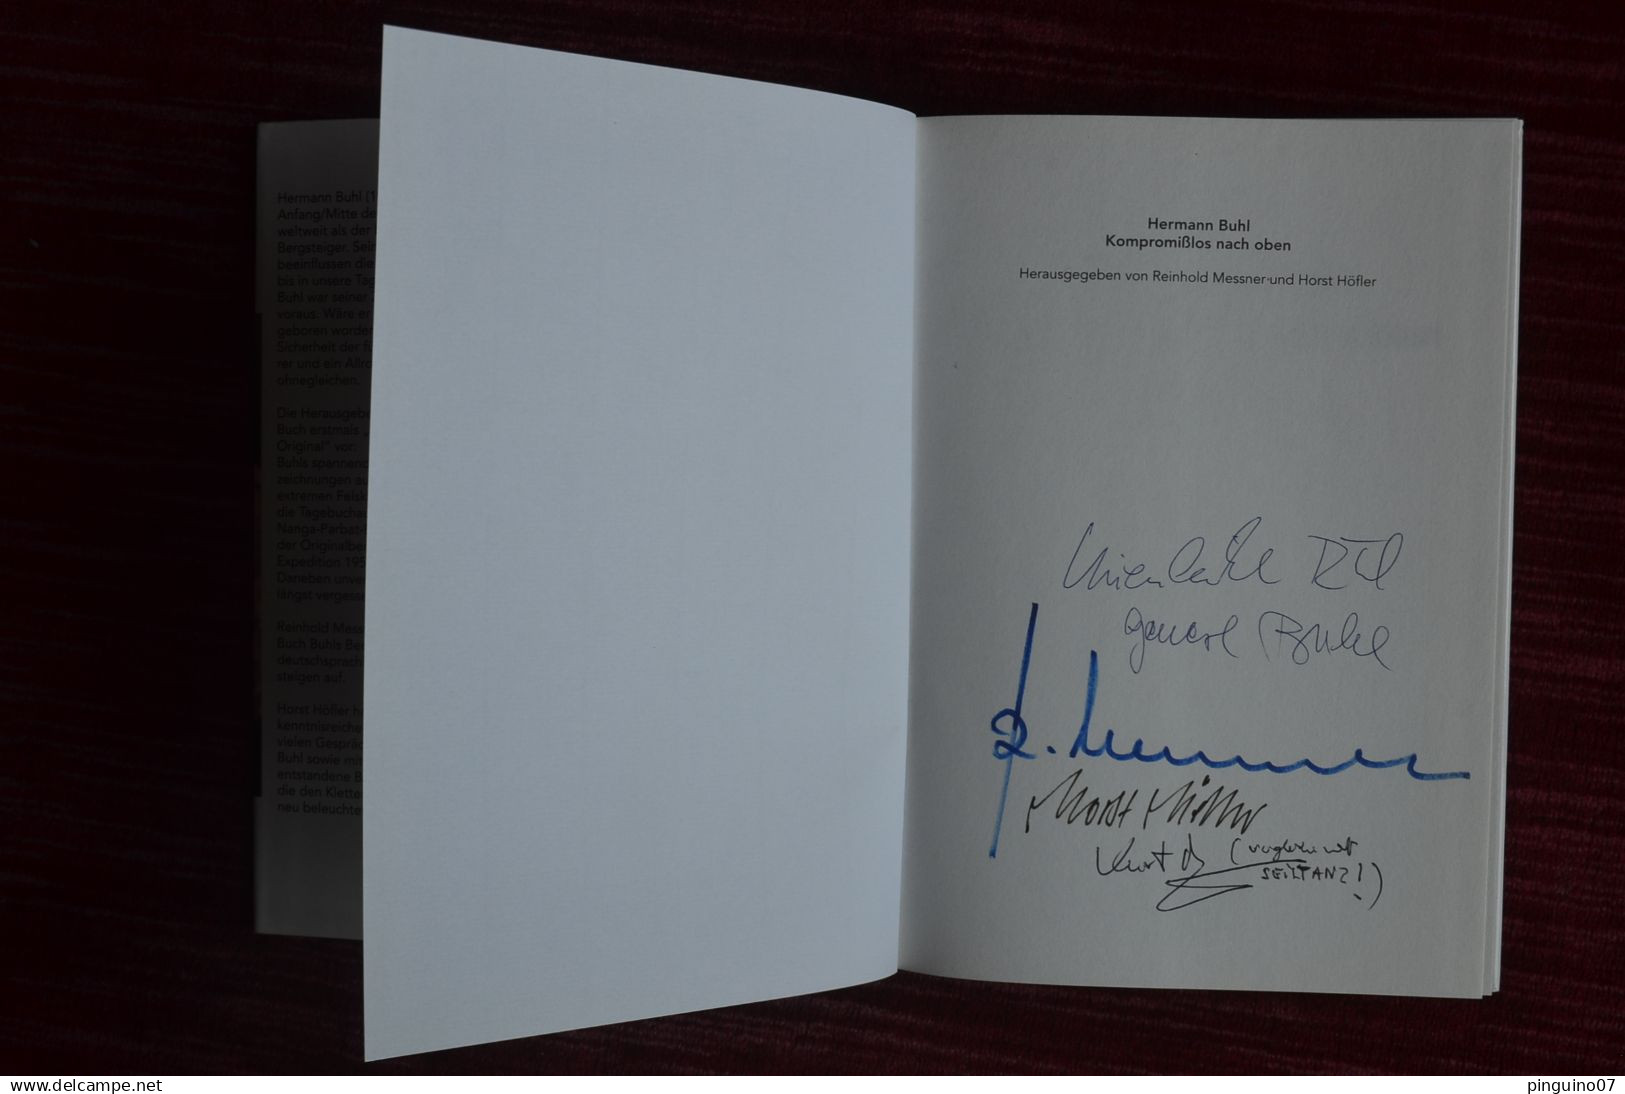 Hermann Buhl (1
Anfang/Mitte de
weltweit als der
Bergsteiger. Sein
beeinflussen die
bis in unsere Tag
Buhl war seiner
voraus. Wäre er
geboren worden
Sicherheit der f
rer und ein Allro
ohnegleichen.
Die Herausgebe
Buch erstmals „
Original" vor:
Buhls spannend
zeichnungen au
extremen Felsk
die Tagebucha
Nanga-Parbat-
der Originalber
Expedition 195
Daneben unver
längst vergesse
Reinhold Mess
Buch Buhls Be
deutschsprach
steigen auf.
Horst Höfler h
kenntnisreiche
vielen Gespräc
Buhl sowie mit
entstandene B
die den Klette
neu beleuchte
Hermann Buhl
Kompromißlos nach oben
Herausgegeben von Reinhold Messner und Horst Höfler
Buhl
R. Messner
Horst Höfler
Kurt
SEILTANZ!)
www.delcampe.net
pinguino07